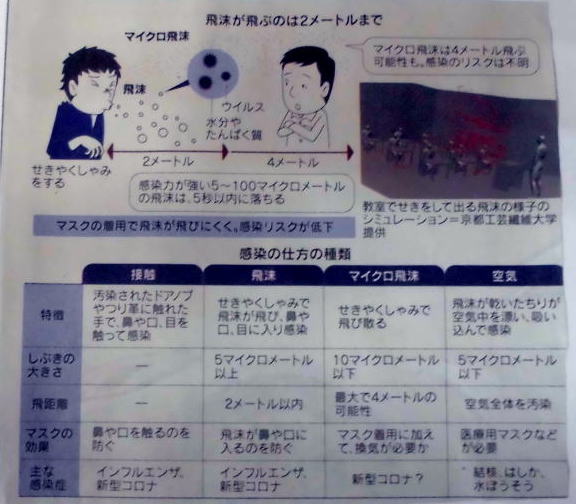 飛沫が飛ぶのは2メートルまで
マイクロ飛沫
飛沫
ウイルス
水分や
たんぱく質
マイクロ飛沫は4メートル飛ぶ
可能性も。感染のリスクは不明
せきやくしゃみ
をする
2メートル
4メートル
感染力が強い5〜100マイクロメートル
の飛沫は、5秒以内に落ちる
マスクの着用で飛沫が飛びにくく。感染リスクが低下
教室でせきをして出る飛沫の様子の
シミュレーション=京都工芸繊維大学
提供
感染の仕方の種類
接触
飛沫
マイクロ飛沫
空気
特徴
汚染されたドアノブ
やつり革に触れた
手で、鼻や口、目を
触って感染
せきやくしゃみで
飛沫が飛び、鼻や
口、目に入り感染
せきやくしゃみで
飛び散る
飛沫が乾いたちりが
空気中を漂い、吸い
込んで感染
しぶきの
大きさ
―
5マイクロメートル
以上
10マイクロメートル
以下
5マイクロメートル
以下
飛距離
―
2メートル以内
最大で4メートルの
可能性
空気全体を汚染
マスクの
効果
鼻や口を触るのを
防ぐ
飛沫が鼻や口に
入るのを防ぐ
マスク着用に加え
て、換気が必要か
医療用マスクなど
が必要
主な
感染症
インフルエンザ、
新型コロナ
インフルエンザ、
新型コロナ
新型コロナ?
結核、はしか、
水ぼうそう